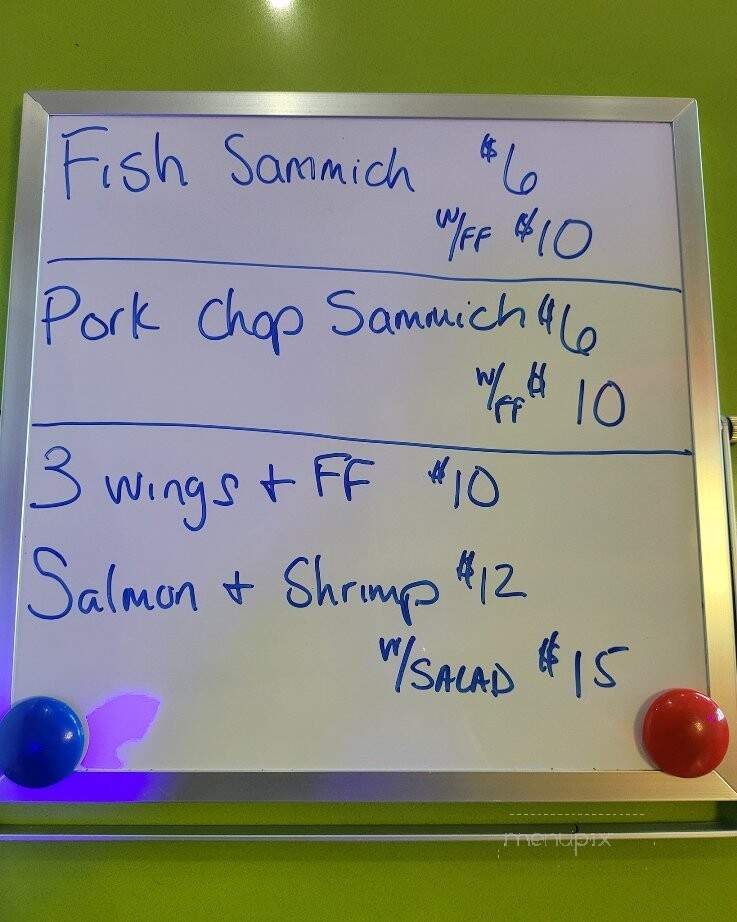 Fish Sammich $6
w/FF $10
Pork Chop Sammich $6
w/FF $10
3 wings + FF $10
Salmon + Shrimp $12
w/SALAD $15
menupix